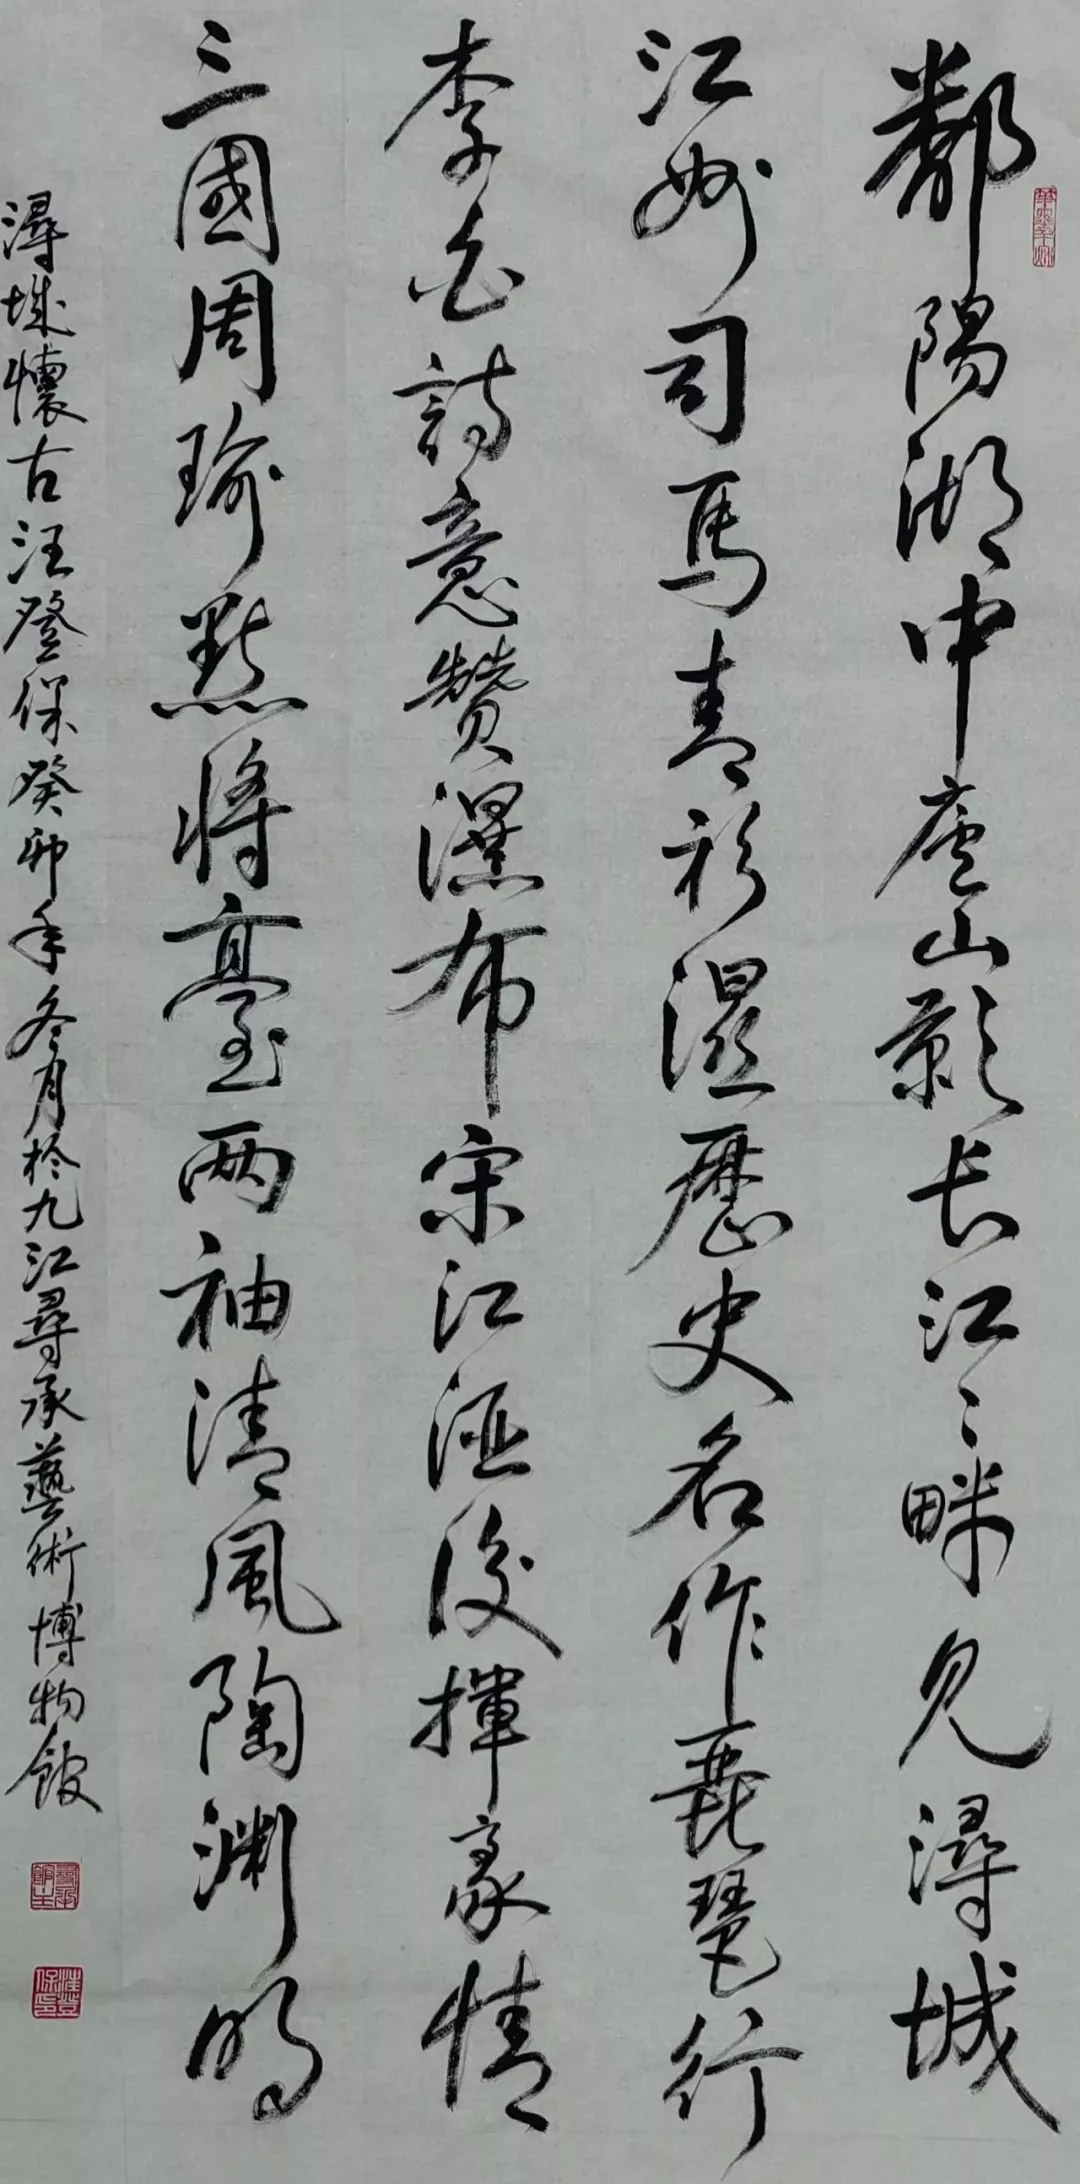 鄱陽湖中廬山影长江〻畔見潯城
江州司馬青衫濕歷史名作琵琶行
李白詩意贊瀑布宋江酒後揮豪情
三國周瑜點將臺两袖清風陶渊明
潯城懷古汪登保癸卯年冬月於九江尋承藝術博物館
尋承館主
汪登保印